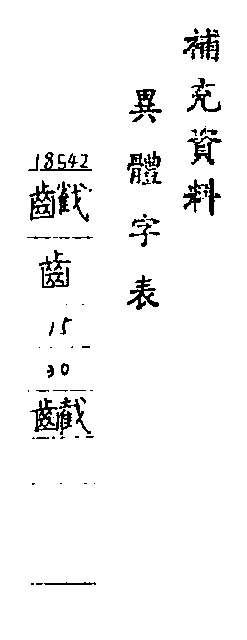 補充資料
異體字表
18542
齒
15
30